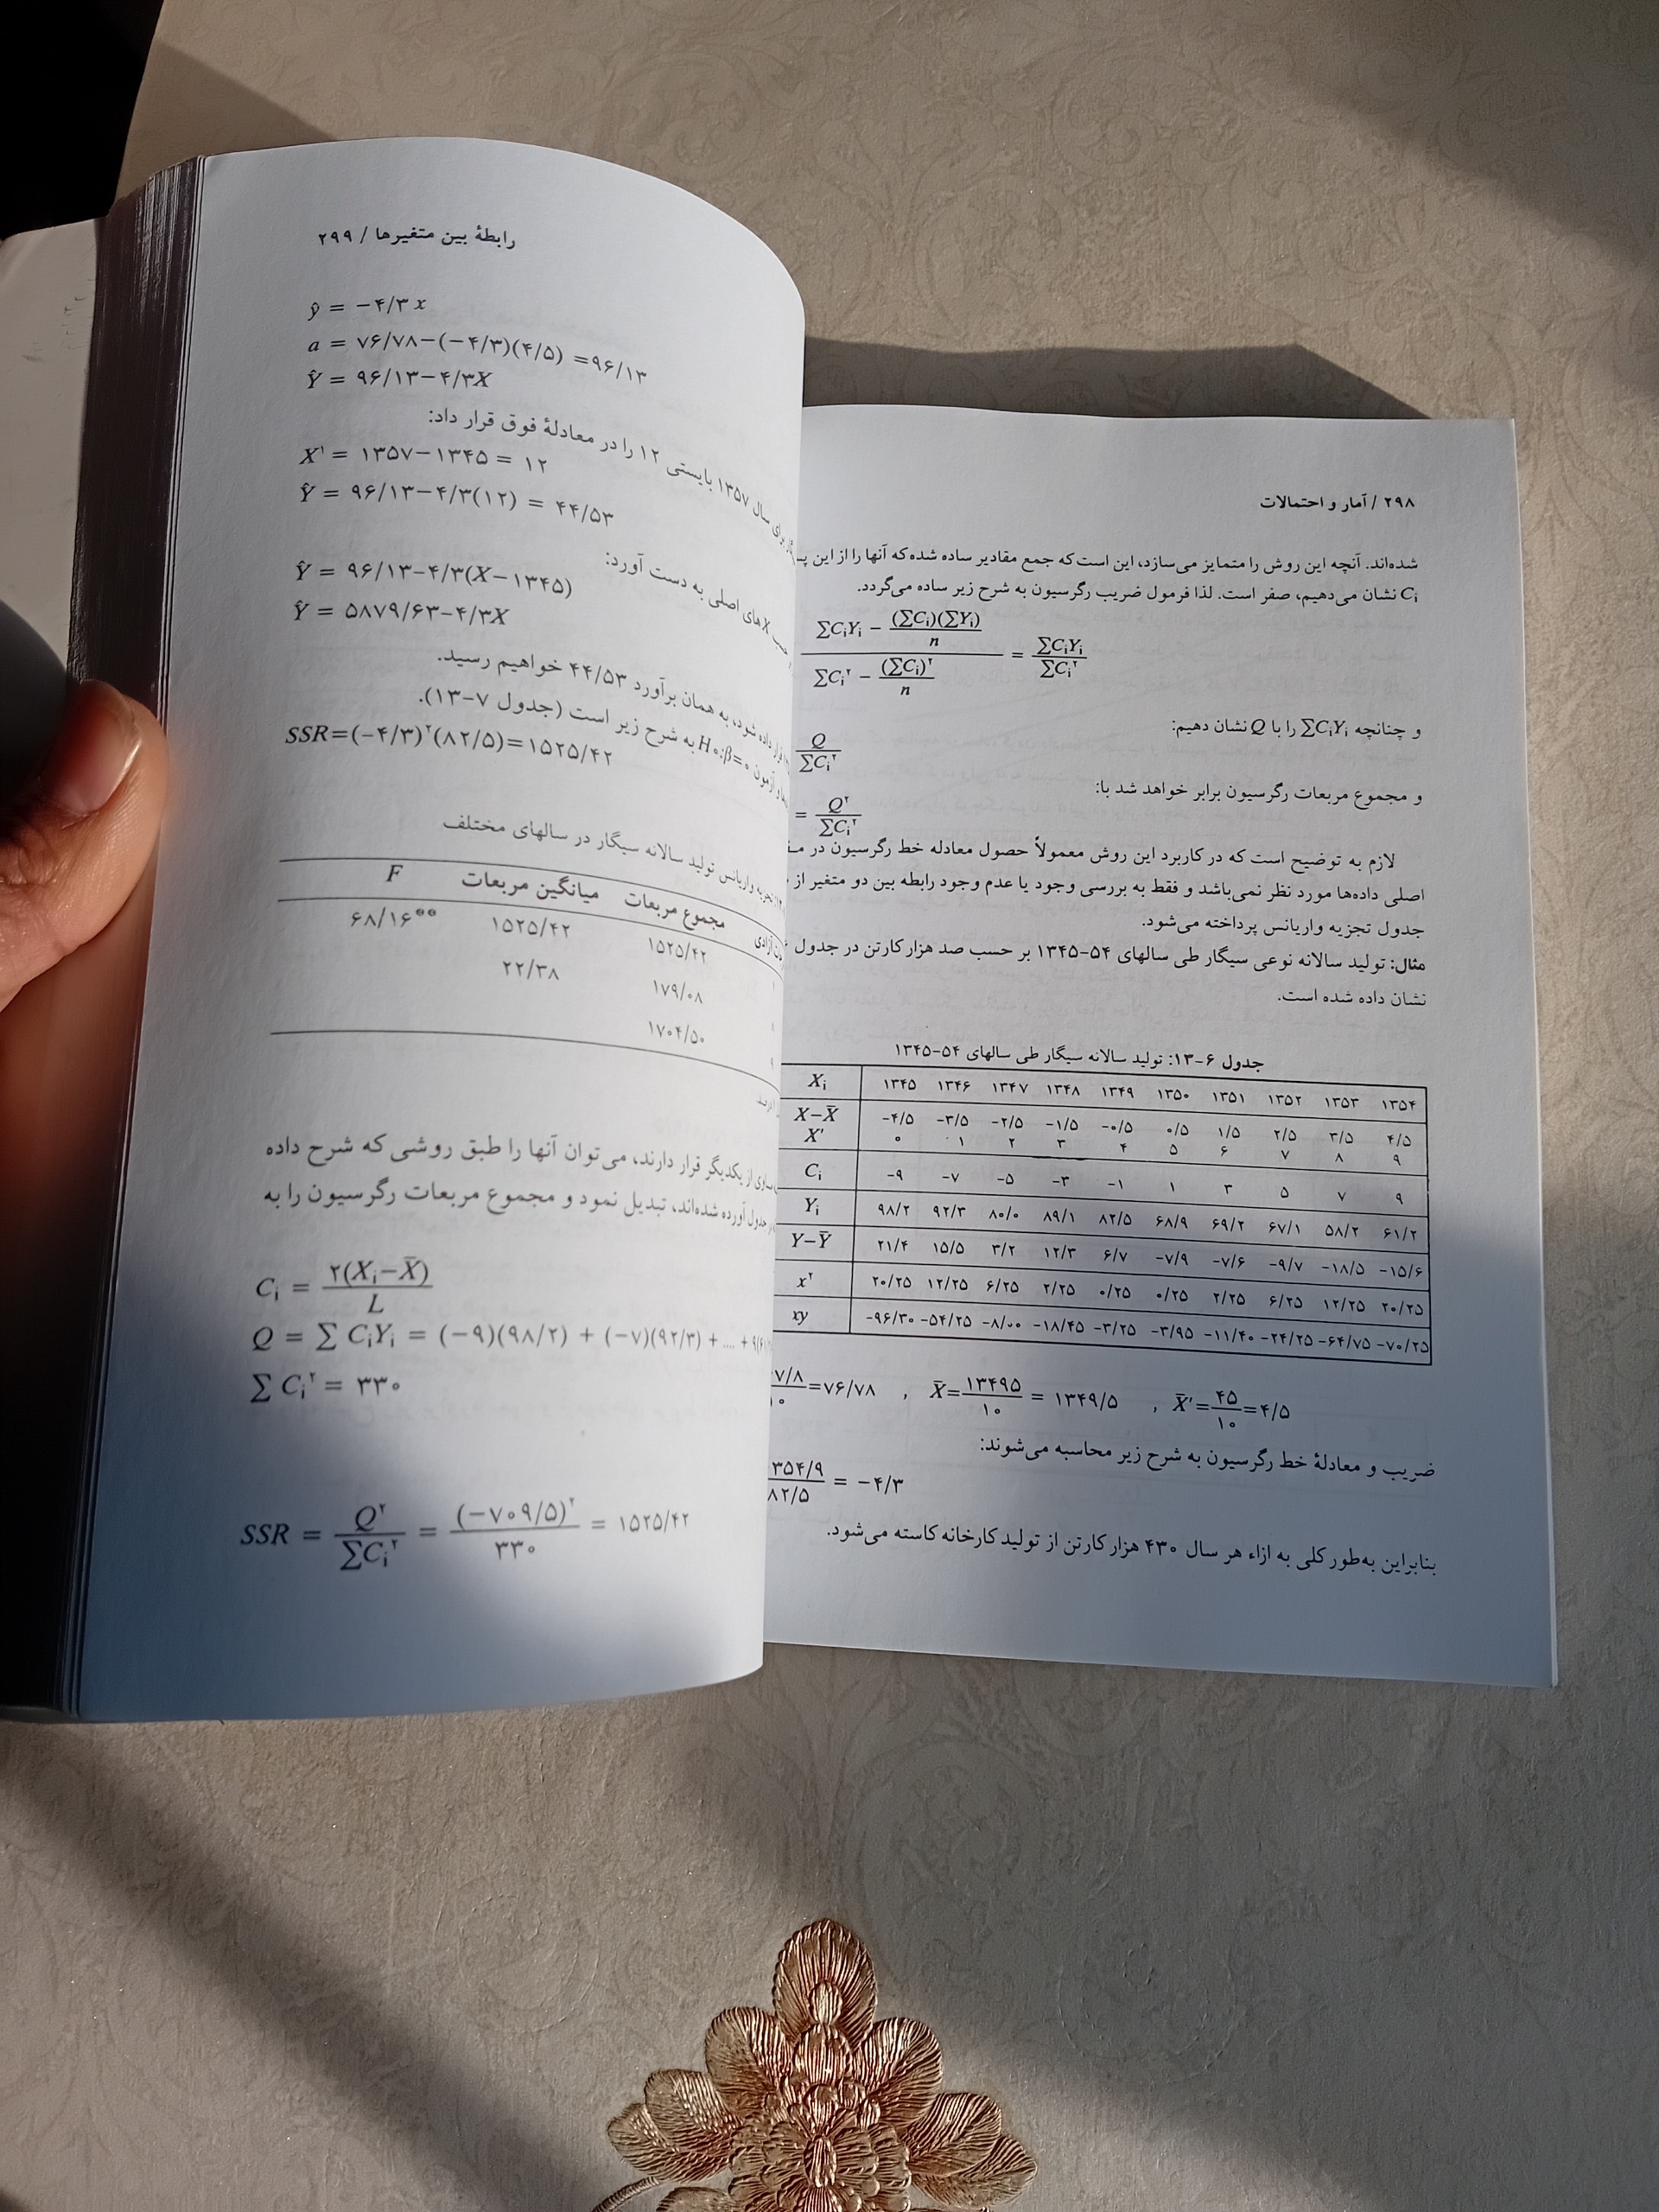 ۲۹۸ / آمار و احتمالات
شده‌اند. آنچه این روش را متمایز می‌سازد، این است که جمع مقادیر ساده شده که آنها را از این پس
Cᵢ نشان می‌دهیم، صفر است. لذا فرمول ضریب رگرسیون به شرح زیر ساده می‌گردد.
(∑CᵢYᵢ − (∑Cᵢ)(∑Yᵢ)/n) / (∑Cᵢ² − (∑Cᵢ)²/n) = ∑CᵢYᵢ / ∑Cᵢ²
و چنانچه ∑CᵢYᵢ را با Q نشان دهیم:
Q / ∑Cᵢ²
و مجموع مربعات رگرسیون برابر خواهد شد با:
= Q² / ∑Cᵢ²
لازم به توضیح است که در کاربرد این روش معمولاً حصول معادله خط رگرسیون در
اصلی داده‌ها مورد نظر نمی‌باشد و فقط به بررسی وجود یا عدم وجود رابطه بین دو متغیر از
جدول تجزیه واریانس پرداخته می‌شود.
مثال: تولید سالانه نوعی سیگار طی سالهای ۵۴-۱۳۴۵ بر حسب صد هزار کارتن در جدول
نشان داده شده است.
جدول ۶-۱۳: تولید سالانه سیگار طی سالهای ۵۴-۱۳۴۵
Xᵢ ۱۳۴۵ ۱۳۴۶ ۱۳۴۷ ۱۳۴۸ ۱۳۴۹ ۱۳۵۰ ۱۳۵۱ ۱۳۵۲ ۱۳۵۳ ۱۳۵۴
X−X̄ −۴/۵ −۳/۵ −۲/۵ −۱/۵ −۰/۵ ۰/۵ ۱/۵ ۲/۵ ۳/۵ ۴/۵
X' ۰ ۱ ۲ ۳ ۴ ۵ ۶ ۷ ۸ ۹
Cᵢ −۹ −۷ −۵ −۳ −۱ ۱ ۳ ۵ ۷ ۹
Yᵢ ۹۸/۲ ۹۲/۳ ۸۰/۰ ۸۹/۱ ۸۲/۵ ۶۸/۹ ۶۹/۲ ۶۷/۱ ۵۸/۲ ۶۱/۲
Y−Ȳ ۲۱/۴ ۱۵/۵ ۳/۲ ۱۲/۳ ۶/۷ −۷/۹ −۷/۶ −۹/۷ −۱۸/۵ −۱۵/۶
x² ۲۰/۲۵ ۱۲/۲۵ ۶/۲۵ ۲/۲۵ ۰/۲۵ ۰/۲۵ ۲/۲۵ ۶/۲۵ ۱۲/۲۵ ۲۰/۲۵
xy −۹۶/۳۰ −۵۴/۲۵ −۸/۰۰ −۱۸/۴۵ −۳/۲۵ −۳/۹۵ −۱۱/۴۰ −۲۴/۲۵ −۶۴/۷۵ −۷۰/۲۵
۷/۸ / ۱۰ = ۷۶/۷۸ , X̄ = ۱۳۴۹۵ / ۱۰ = ۱۳۴۹/۵ , X̄' = ۴۵ / ۱۰ = ۴/۵
ضریب و معادلهٔ خط رگرسیون به شرح زیر محاسبه می‌شوند:
۳۵۴/۹ / ۸۲/۵ = −۴/۳
بنابراین به‌طور کلی به ازاء هر سال ۴۳۰ هزار کارتن از تولید کارخانه کاسته می‌شود.
رابطهٔ بین متغیرها / ۲۹۹
ŷ = −۴/۳ x
a = ۷۶/۷۸−(−۴/۳)(۴/۵) =۹۶/۱۳
Ŷ = ۹۶/۱۳−۴/۳X
برای سال ۱۳۵۷ بایستی ۱۲ را در معادلهٔ فوق قرار داد:
X' = ۱۳۵۷−۱۳۴۵ = ۱۲
Ŷ = ۹۶/۱۳−۴/۳(۱۲) = ۴۴/۵۳
X های اصلی به دست آورد:
Ŷ = ۹۶/۱۳−۴/۳(X−۱۳۴۵)
Ŷ = ۵۸۷۹/۶۳−۴/۳X
داده شود، به همان برآورد ۴۴/۵۳ خواهیم رسید.
آزمون H₀:β=۰ به شرح زیر است (جدول ۷-۱۳).
SSR=(−۴/۳)²(۸۲/۵)=۱۵۲۵/۴۲
تجزیه واریانس تولید سالانه سیگار در سالهای مختلف
آزادی مجموع مربعات میانگین مربعات F
۱ ۱۵۲۵/۴۲ ۱۵۲۵/۴۲ ۶۸/۱۶**
۸ ۱۷۹/۰۸ ۲۲/۳۸
۹ ۱۷۰۴/۵۰
از یکدیگر قرار دارند، می‌توان آنها را طبق روشی که شرح داده
جدول آورده شده‌اند، تبدیل نمود و مجموع مربعات رگرسیون را به
Cᵢ = ۲(Xᵢ−X̄) / L
Q = ∑ CᵢYᵢ = (−۹)(۹۸/۲) + (−۷)(۹۲/۳) + .... + ۹(۶
∑ Cᵢ² = ۳۳۰
SSR = Q² / ∑Cᵢ² = (−۷۰۹/۵)² / ۳۳۰ = ۱۵۲۵/۴۲